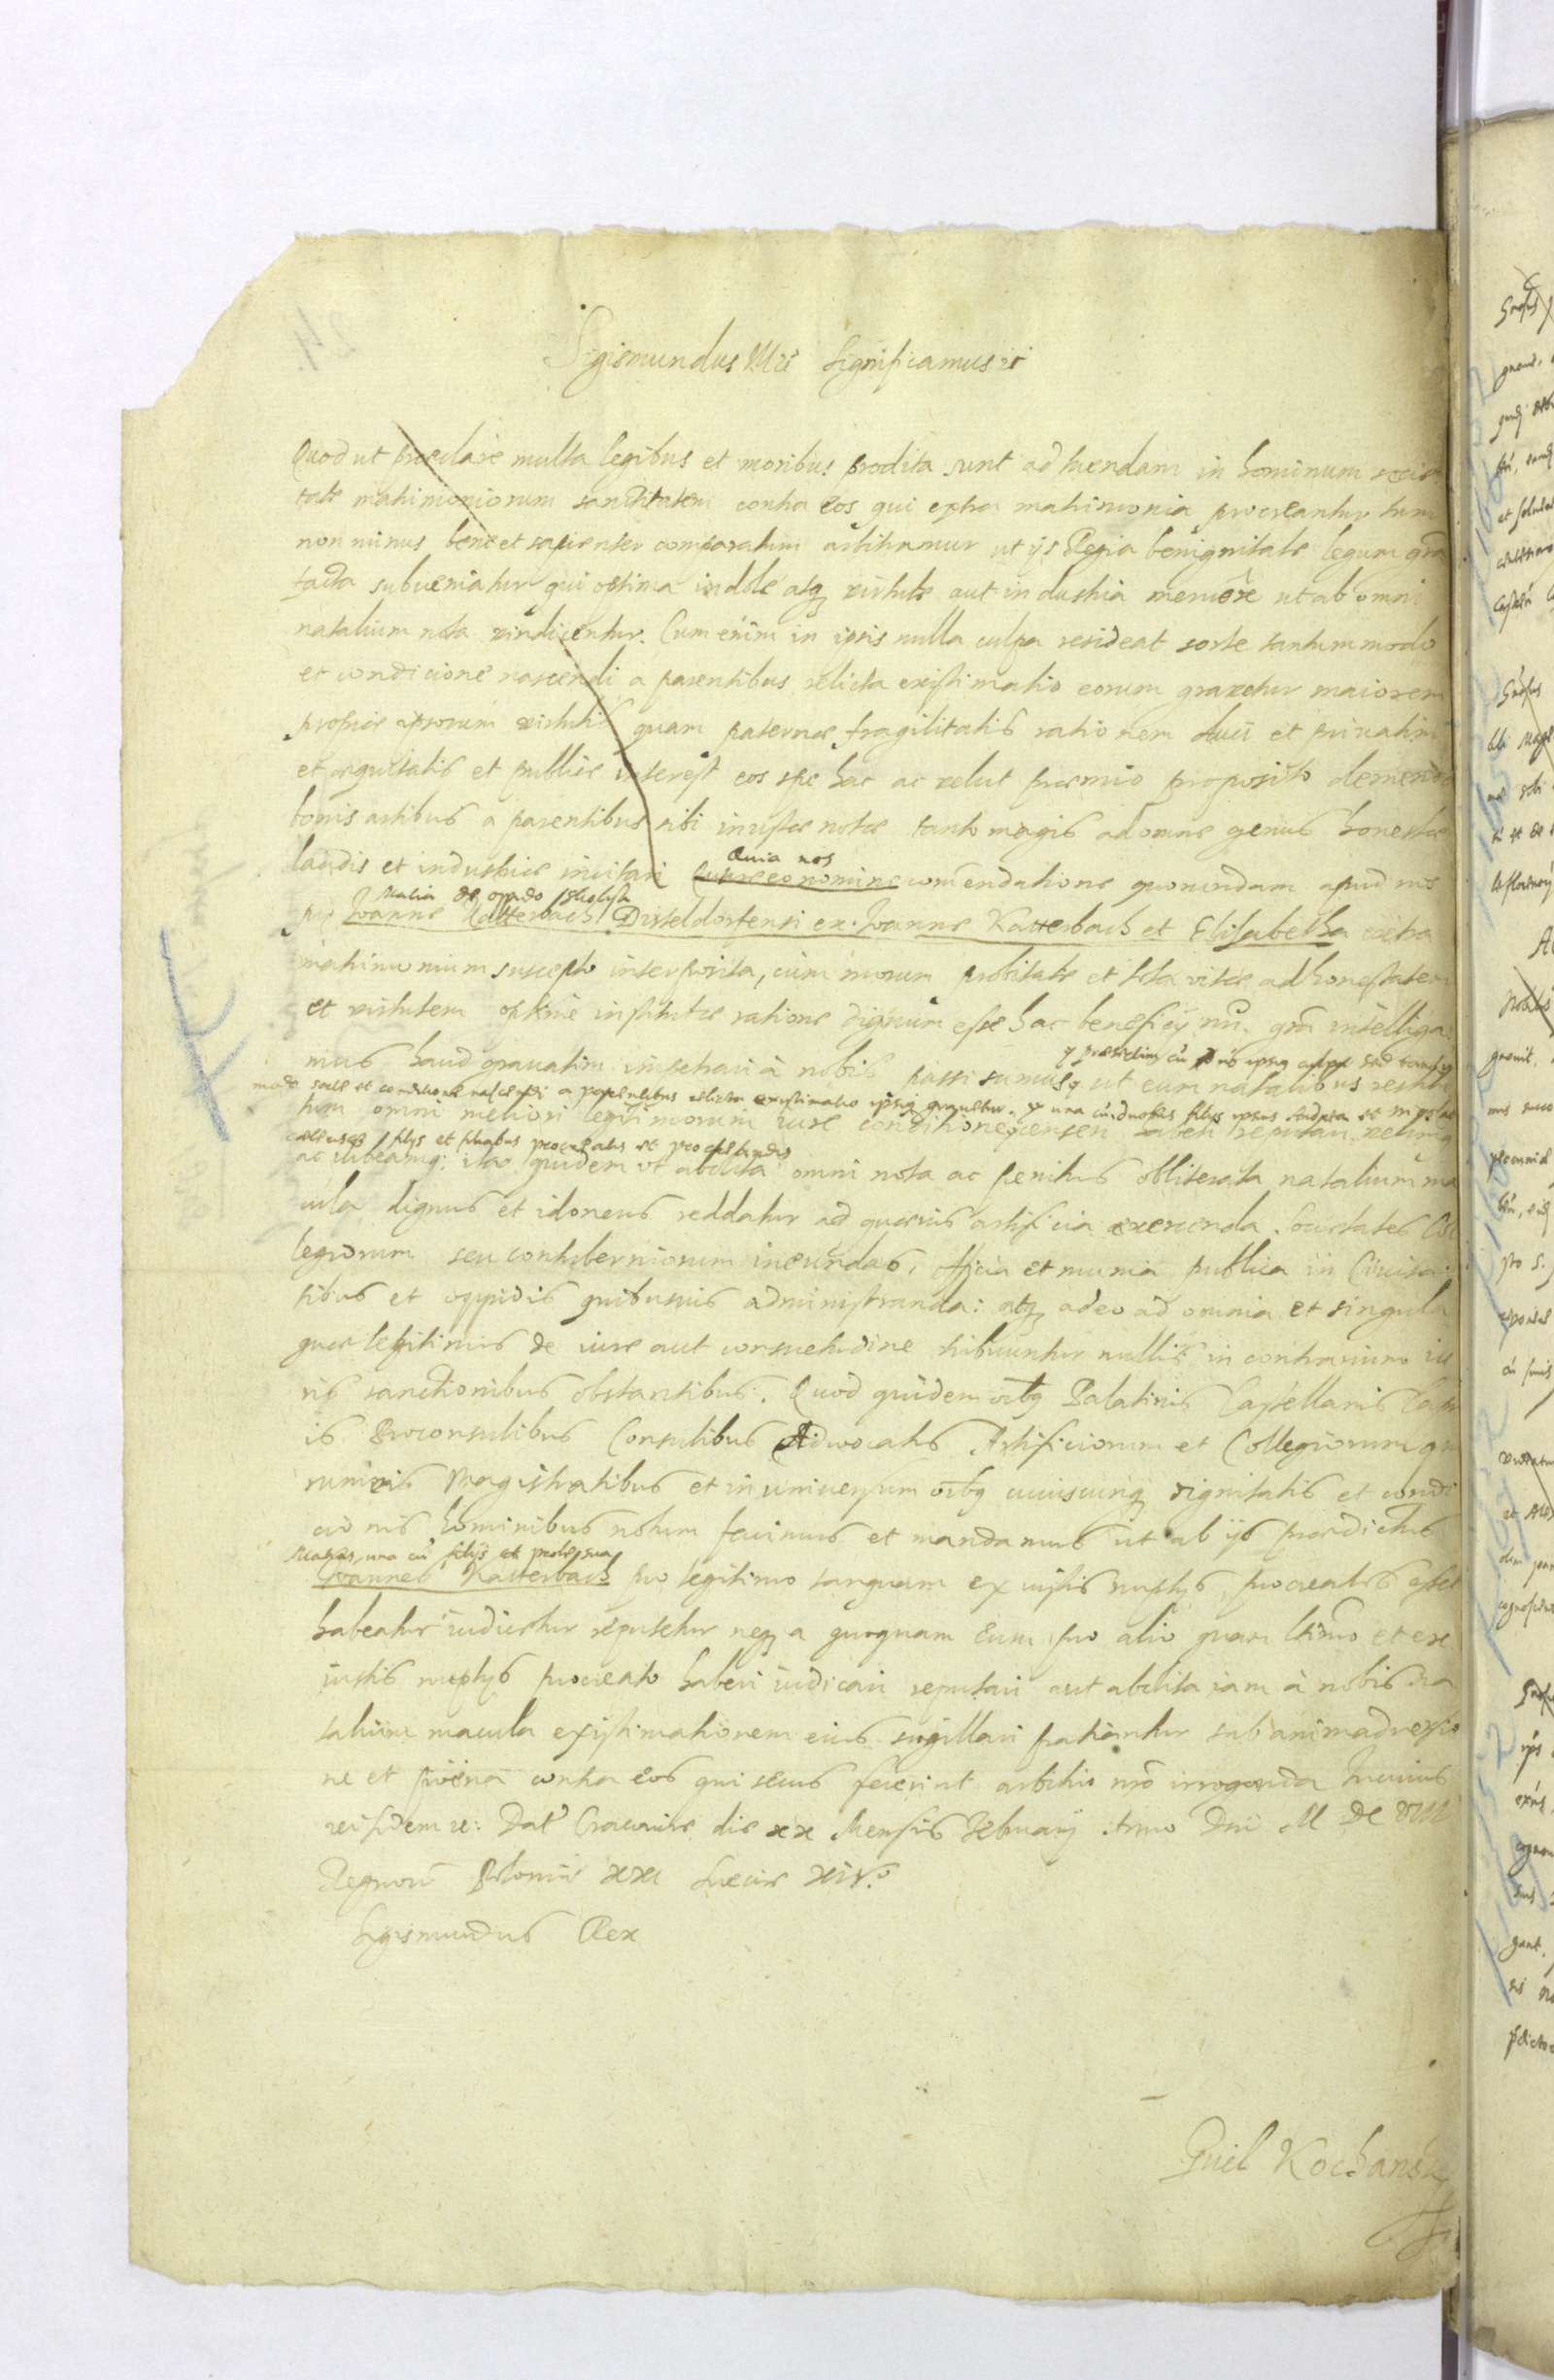 Sigismundus IIIs Significamus
Quod ut præclare multa legibus et moribus prodita sunt ad tuendam in hominum socie
tate matrimoniorum sanctitatem contra eos qui extra matrimonia procreantur tum
non minus bene et sapienter comparatum arbitramur ut ijs Regia benignitate legum
subueniatur qui optima indole atq virtute aut industria meruere ut ab omni
natalium nota vindicentur. Cum enim in ipsis nulla culpa resideat sorte tantummodo
et condicione nascendi a parentibus relicta existimatio eorum grauetur maiorem
propriæ ipsorum virtutis quam paternæ fragilitatis rationem duci et priuatim
et æquitatis et publice interest eos spe hac ac velut præmio proposito
bonis artibus a parentibus sibi inustæ notæ tanto magis ad omne genus honestæ
laudis et industriæ incitari
Quia nos
comendatione quorundam apud nos
de
Joanne Katterbach Disseldorfensi ex Joanne Katterbach et Elisabetha extra
matrimonium suscepto interposita, cum morum probitate et tota vitæ ad honestatem
et virtutem optime institutæ ratione dignum esse hac beneficij nri. gra intelliga
mus haud grauatim impetrari à nobis passi sumus ut eum natalibus restitu
modo sorte et conditione nascendi a parentibus relicta existimatio ipsius grauetur. una cu duobus filijs ipsius Andrea et
tum omni meliori legitimorum iure conditione censeri haberi reputari
filijs et filiabus procreatis et procreandis
ac iubeamq: ita quidem ut abolita omni nota ac penitus obliterata natalium ma
cula dignus et idoneus reddatur ad quæuis artificia exercenda. Societates Col
legiorum seu contuberniorum ineundas, officia et munia publica in Ciuita
tibus et oppidis quibusuis administranda: atq adeo ad omnia et singula
quæ legitimis de iure aut consuetudine tribuuntur nullis in contrarium iu
ris sanctionibus obstantibus. Quod quidem oibq Palatinis Castellanis Capi
is Proconsulibus Consulibus Aduocatis Artificiorum et Collegiorum quo
rumuis Magistratibus et in uniuersum oibq cuiuscunq dignitatis et condi
cionis hominibus notum facimus et mandamus ut ab ijs prædictus
una cu filijs et prole sua
Joannes Katterbach pro legitimo tanquam ex iustis nuptijs procreatus
habeatur iudicetur reputetur neq a quoquam eum pro alio quam ltimo et ex
iustis nuptijs procreato haberi iudicari reputari aut abolita iam à nobis na
talium macula existimationem eius sugillari patiantur sub animaduersio
ne et poena contra eos qui secus fecerint arbitrio nro irroganda
rei fidem Dat Cracouiæ die xx Mensis Februarij Anno Dni M DC VIII
Regnoru Poloniæ xxi Sueciæ xiv.o
Sigismundus Rex
Kochansky